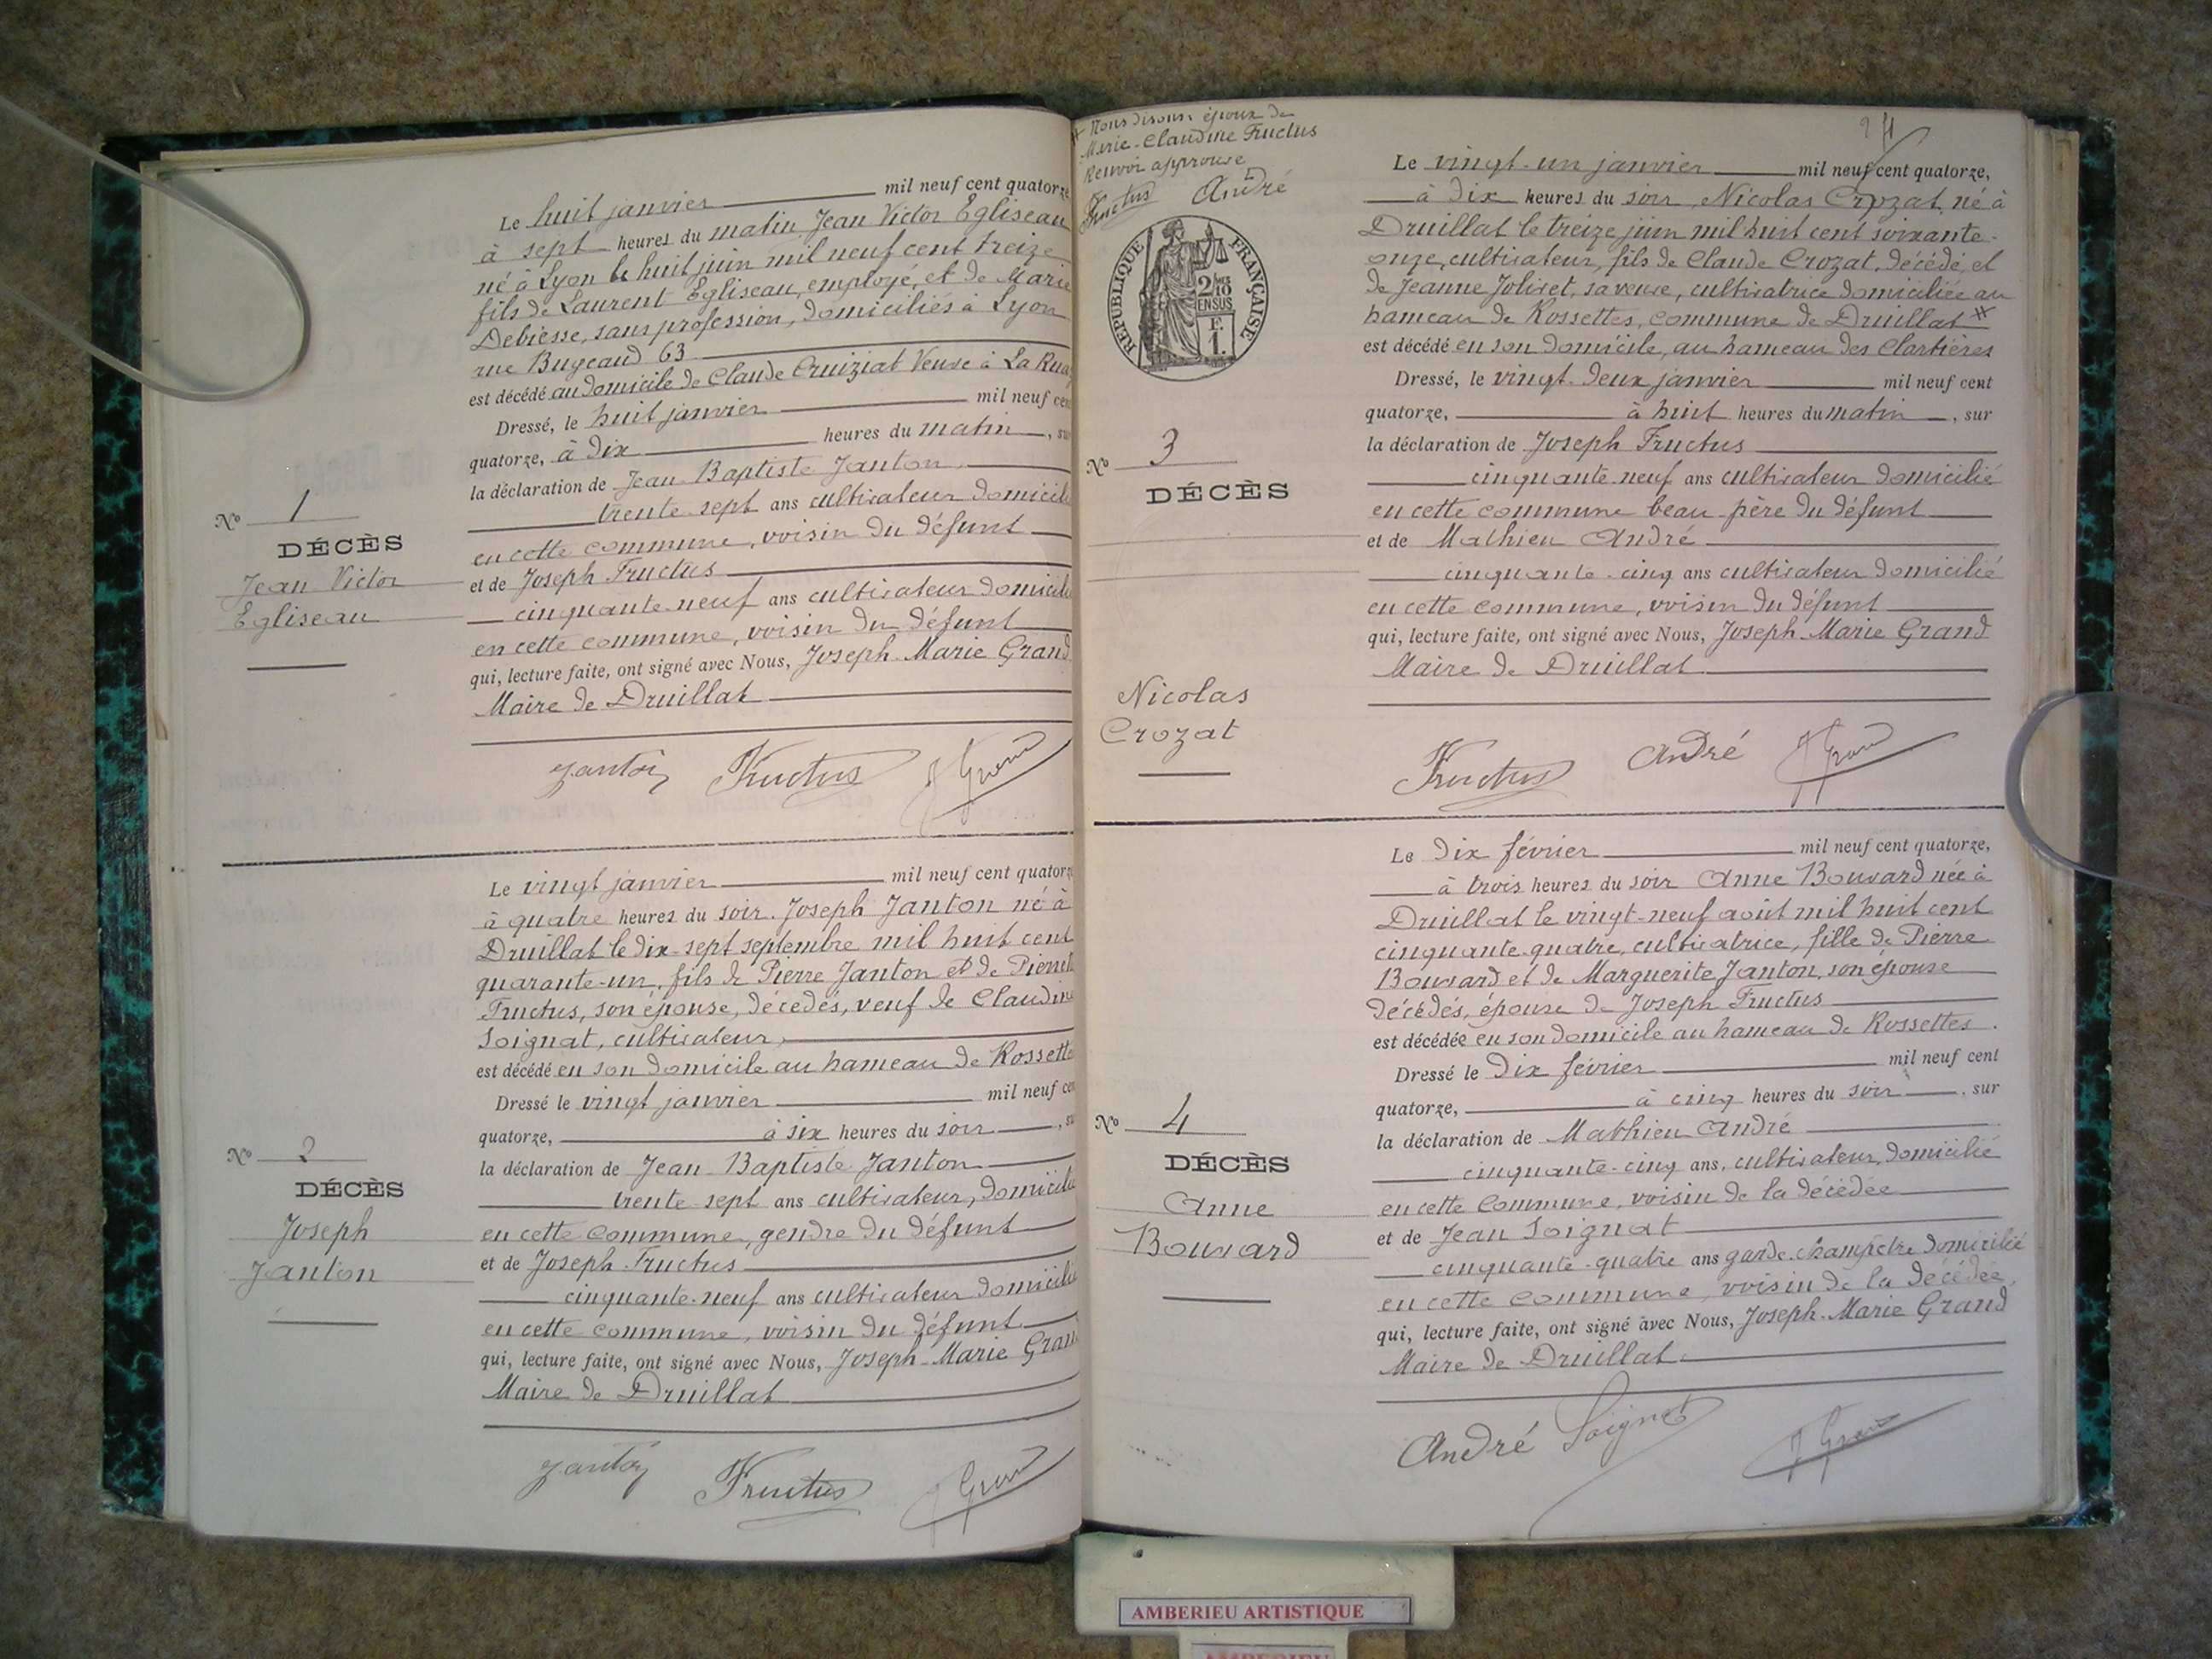 Le huit janvier mil neuf cent quatorze
à sept heures du matin Jean Victor Egliseau
né à Lyon le huit juin mil neuf cent treize
fils de Laurent Egliseau, employé, et de Marie
Debiesse, sans profession, domiciliés à Lyon
rue Bugeaud 63
est décédé au domicile de Claude Cruiziat Veuve à La Rua
Dressé, le huit janvier mil neuf cen
quatorze, à dix heures du matin, su
la déclaration de Jean-Baptiste Janton,
trente-sept ans cultivateur domicili
en cette commune, voisin du défunt
et de Joseph Fructus
cinquante-neuf ans cultivateur domicili
en cette commune, voisin du défunt
qui, lecture faite, ont signé avec Nous, Joseph-Marie Grand
Maire de Druillat
No 1
DÉCÈS
Jean Victor
Egliseau
Janton Fructus J Grand
Le vingt janvier mil neuf cent quatorz
à quatre heures du soir. Joseph Janton né à
Druillat le dix-sept septembre mil huit cent
quarante-un, fils de Pierre Janton et de Pierrett
Fructus, son épouse, décedés, veuf de Claudine
Soignat, cultivateur,
est décédé en son domicile au hameau de Rossette
Dressé le vingt janvier mil neuf cen
quatorze, à six heures du soir, su
la déclaration de Jean-Baptiste Janton
trente-sept ans cultivateur, domicili
en cette commune, gendre du défunt
et de Joseph Fructus
cinquante-neuf ans cultivateur domicili
en cette commune, voisin du défunt
qui, lecture faite, ont signé avec Nous, Joseph-Marie Gran
Maire de Druillat
No 2
DÉCÈS
Joseph
Janton
Janton Fructus J Grand
# Nous disons époux de
Marie-Claudine Fructus
Renvoi approuvé
Fructus André
RÉPUBLIQUE FRANÇAISE
2/10
EN SUS
F.
1.
Le vingt-un janvier mil neuf cent quatorze,
à dix heures du soir, Nicolas Crozat, né à
Druillat le treize juin mil huit cent soixante-
onze, cultivateur, fils de Claude Crozat, décédé, et
de Jeanne Jolivet, sa veuve, cultivatrice domiciliée au
hameau de Rossettes, commune de Druillat #
est décédé en son domicile, au hameau des Clartières
Dressé, le vingt-deux janvier mil neuf cent
quatorze, à huit heures du matin, sur
la déclaration de Joseph Fructus
cinquante-neuf ans cultivateur domicilié
en cette commune beau-père du défunt
et de Mathieu André
cinquante-cinq ans cultivateur domicilié
en cette commune, voisin du défunt
qui, lecture faite, ont signé avec Nous, Joseph-Marie Grand
Maire de Druillat
No 3
DÉCÈS
Nicolas
Crozat
Fructus André J Grand
Le dix février mil neuf cent quatorze,
à trois heures du soir Anne Bouvard née à
Druillat le vingt-neuf août mil huit cent
cinquante-quatre, cultivatrice, fille de Pierre
Bouvard et de Marguerite Janton, son épouse
décédés, épouse de Joseph Fructus
est décédée en son domicile au hameau de Rossettes.
Dressé le dix février mil neuf cent
quatorze, à cinq heures du soir, sur
la déclaration de Mathieu André
cinquante-cinq ans, cultivateur, domicilié
en cette commune, voisin de la décédée
et de Jean Soignat
cinquante-quatre ans garde-champêtre domicilié
en cette commune, voisin de la décédée,
qui, lecture faite, ont signé avec Nous, Joseph-Marie Grand
Maire de Druillat.
No 4
DÉCÈS
Anne
Bouvard
André Soignat J Grand
AMBERIEU ARTISTIQUE
AMBERIEU